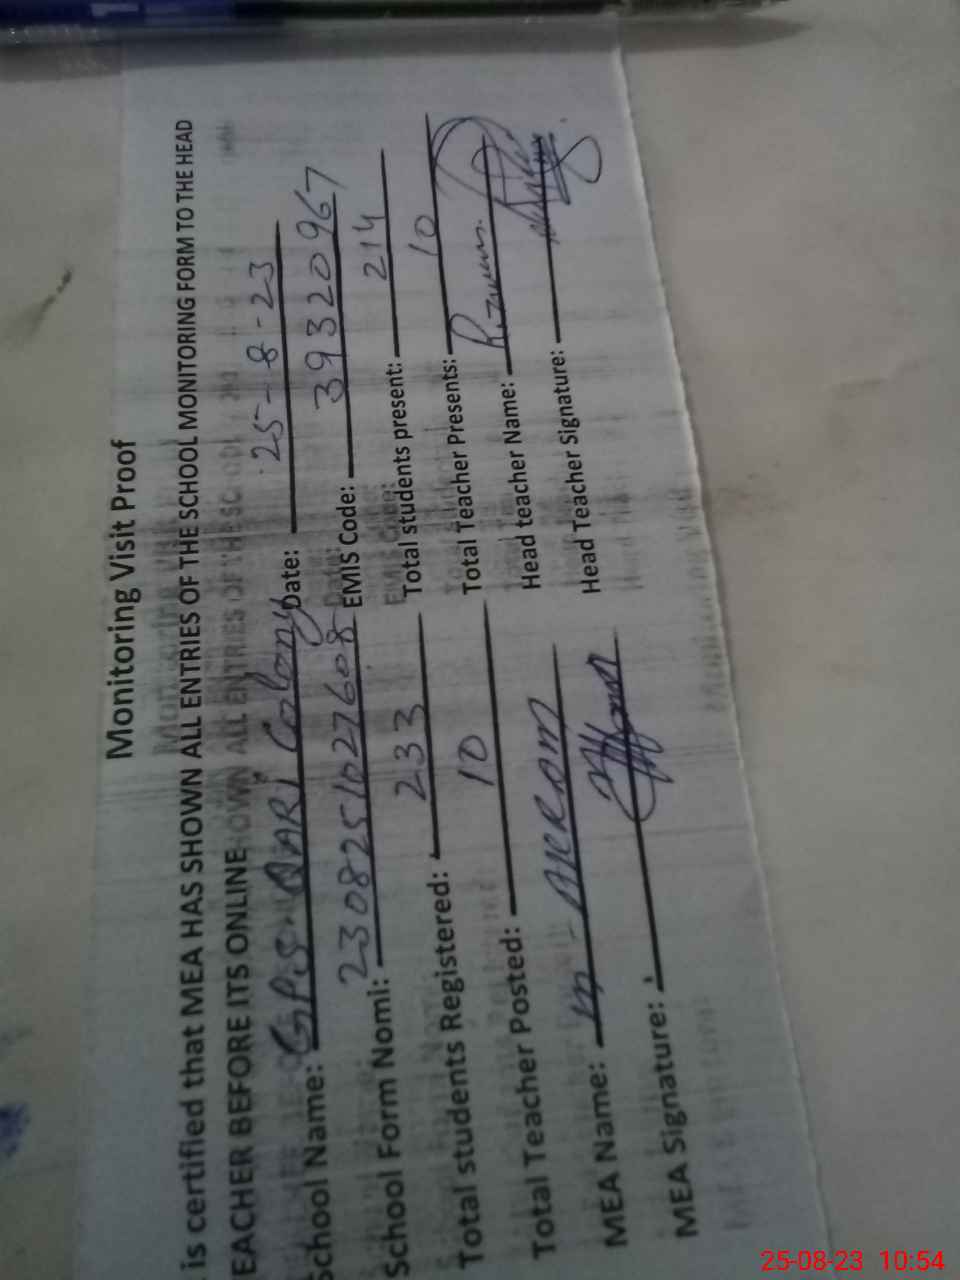 Monitoring Visit Proof
is certified that MEA HAS SHOWN ALL ENTRIES OF THE SCHOOL MONITORING FORM TO THE HEAD
EACHER BEFORE ITS ONLINE
School Name: G.P.S QARI Colony Date: 25-8-23
School Form Nomi: 2308251027608 EMIS Code: 39320967
Total students Registered: 233 Total students present: 214
Total Teacher Posted: 10 Total Teacher Presents: 10
MEA Name: M-AKRAM Head teacher Name:
MEA Signature: Head Teacher Signature:
25-08-23 10:54